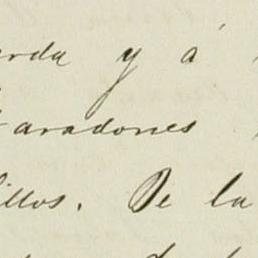 erda y á
aradones
illos. De la